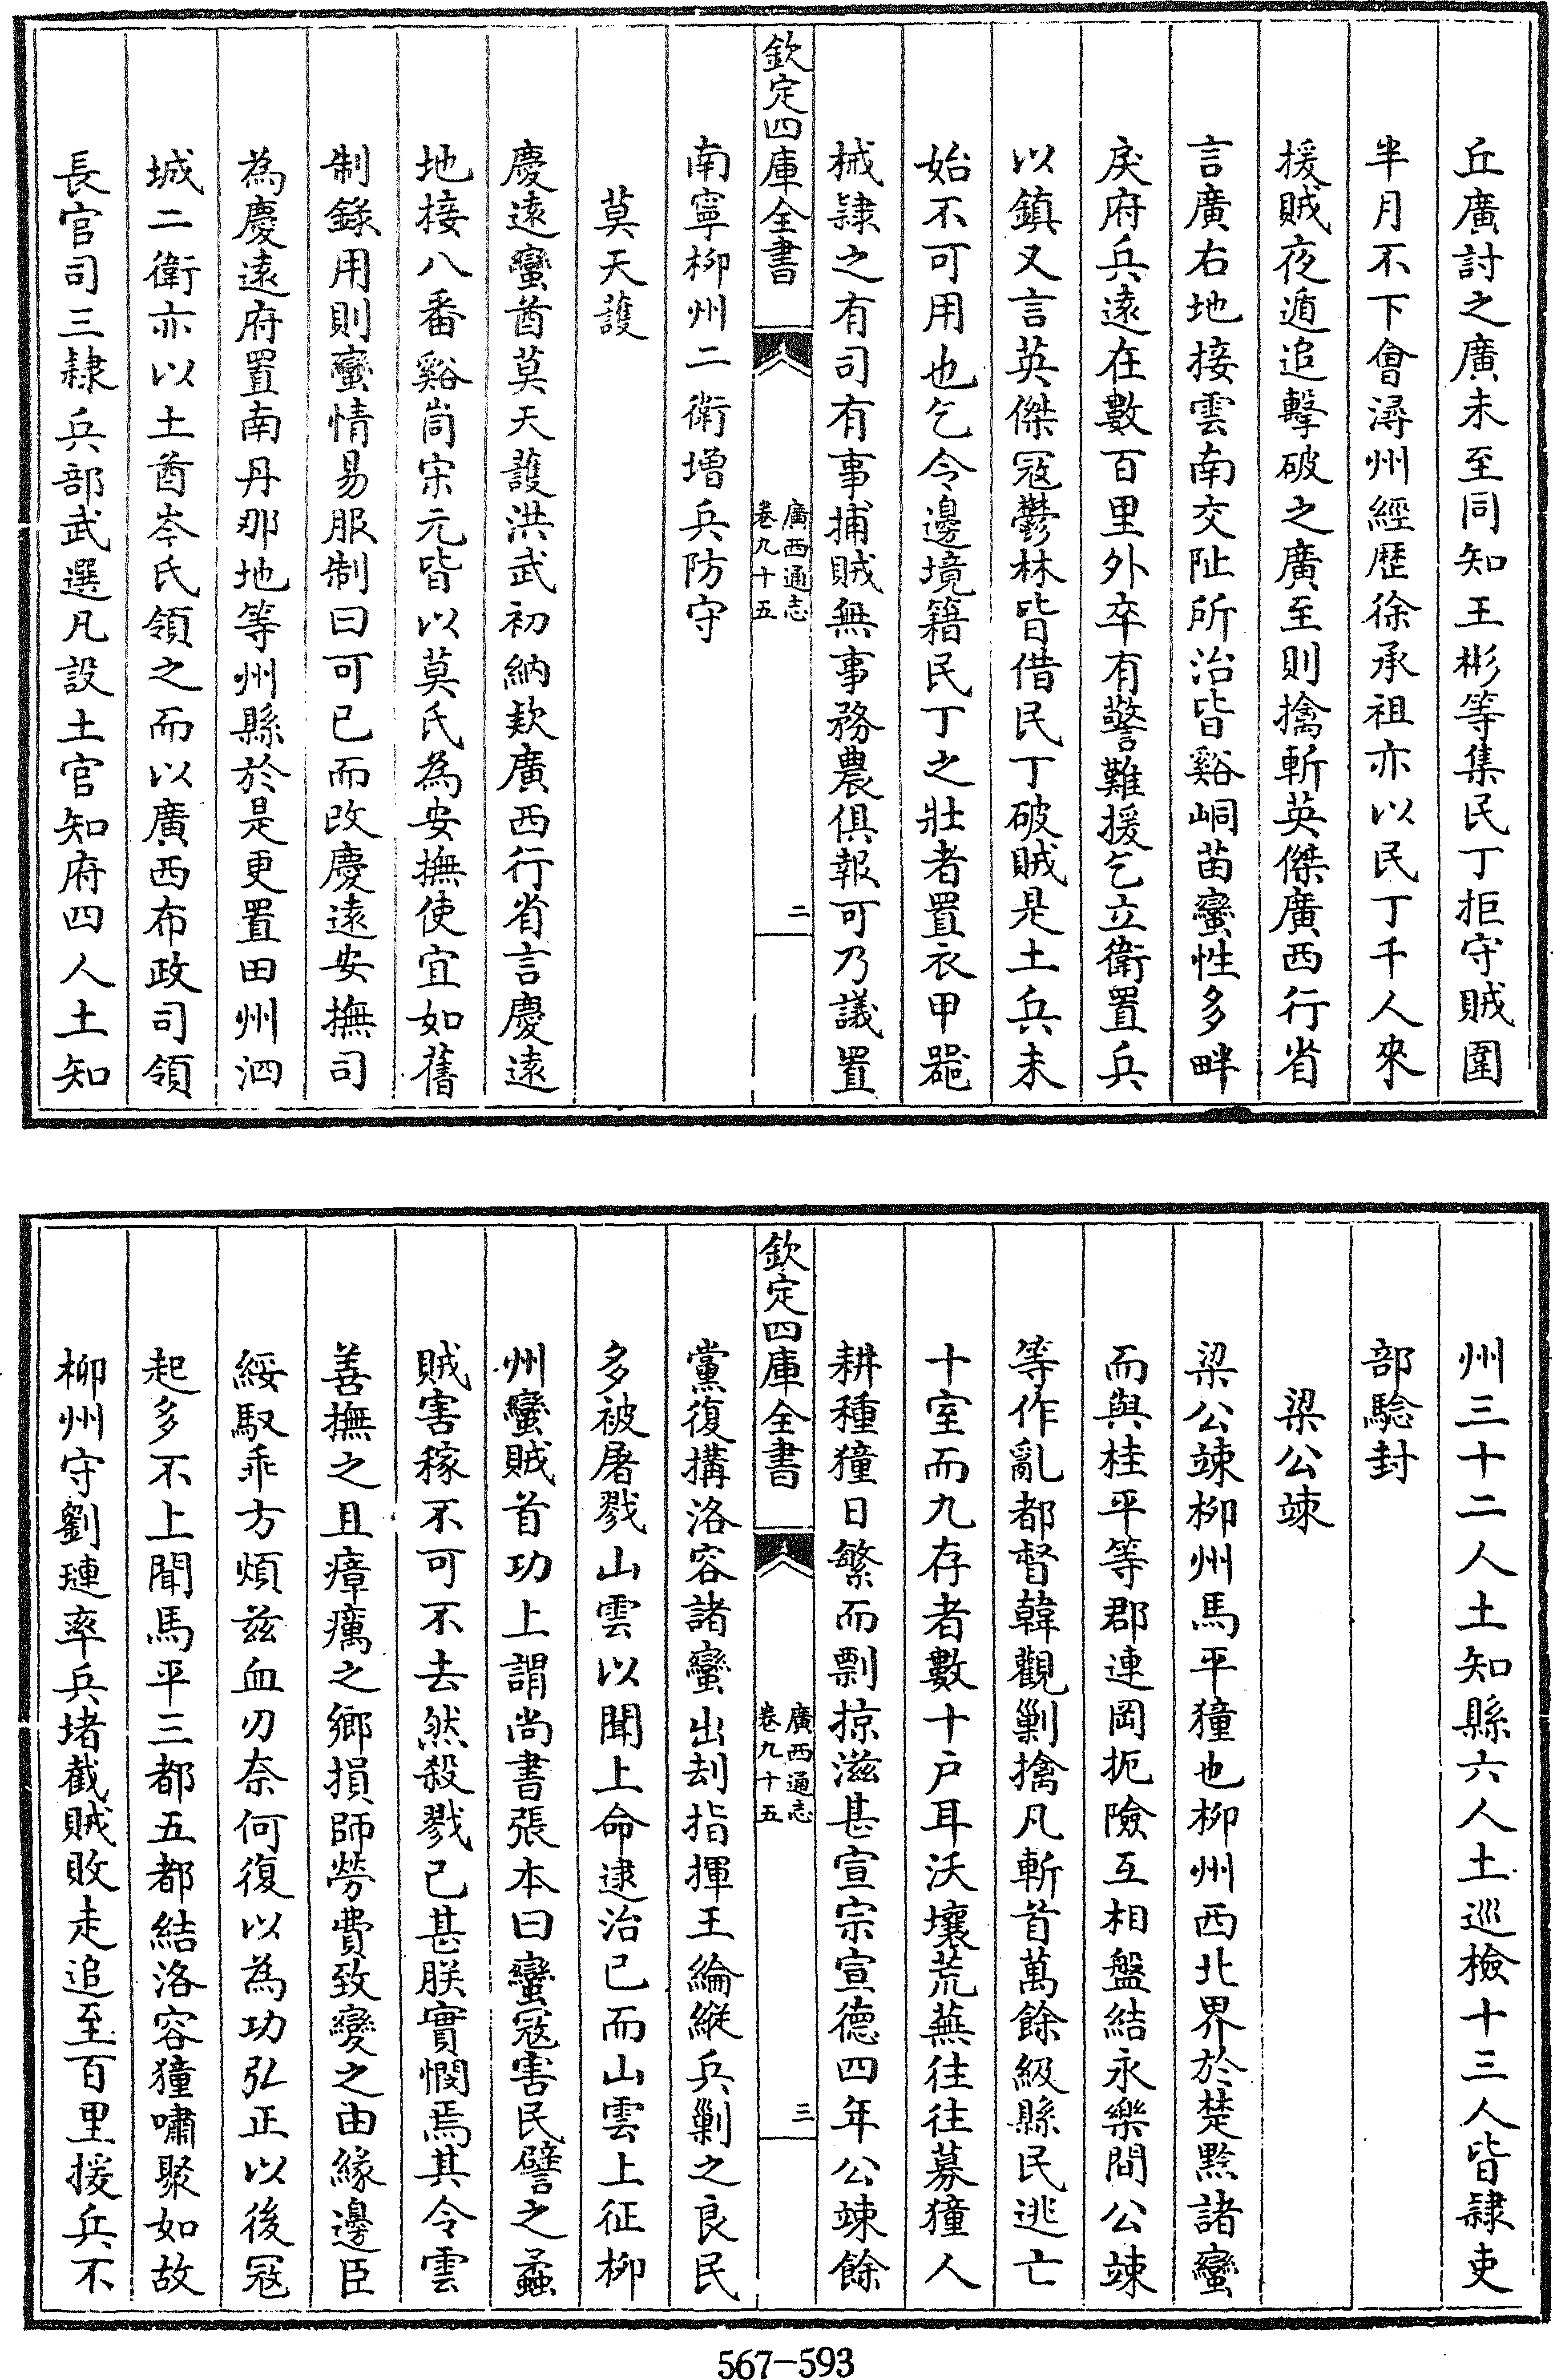 丘廣討之廣未至同知王彬等集民丁拒守賊圍
半月不下會潯州經歷徐承祖亦以民丁千人來
援賊夜遁追擊破之廣至則擒斬英傑廣西行省
言廣右地接雲南交阯所治皆谿峒苗蠻性多畔
戾府兵遠在數百里外卒有警難援乞立衛置兵
以鎮又言英傑冦鬱林皆借民丁破賊是土兵未
始不可用也乞令邊境籍民丁之壯者置衣甲器
械隷之有司有事捕賊無事務農俱報可乃議置
欽定四庫全書
廣西通志
卷九十五
二
南寧柳州二衛增兵防守
莫天護
慶遠蠻酋莫天護洪武初納欵廣西行省言慶遠
地接八番谿峝宋元皆以莫氏為安撫使宜如舊
制錄用則蠻情易服制曰可已而改慶遠安撫司
為慶遠府置南丹那地等州縣於是更置田州泗
城二衛亦以土酋岑氏領之而以廣西布政司領
長官司三隸兵部武選凡設土官知府四人土知
州三十二人土知縣六人土巡檢十三人皆隷吏
部驗封
梁公竦
梁公竦柳州馬平獞也柳州西北界於楚黔諸蠻
而與桂平等郡連岡扼險互相盤結永樂間公竦
等作亂都督韓觀剿擒凡斬首萬餘級縣民逃亡
十室而九存者數十户耳沃壤荒蕪往往募獞人
耕種獞日繁而剽掠滋甚宣宗宣德四年公竦餘
欽定四庫全書
廣西通志
卷九十五
三
黨復搆洛容諸蠻出刦指揮王綸縱兵剿之良民
多被屠戮山雲以聞上命逮治已而山雲上征柳
州蠻賊首功上謂尚書張本曰蠻冦害民譬之蟊
賊害稼不可不去然殺戮已甚朕實憫焉其令雲
善撫之且瘴癘之鄉損師勞費致變之由緣邊臣
綏馭乖方煩兹血刃奈何復以為功弘正以後冦
起多不上聞馬平三都五都結洛容獞嘯聚如故
柳州守劉璉率兵堵截賊敗走追至百里援兵不
567-593